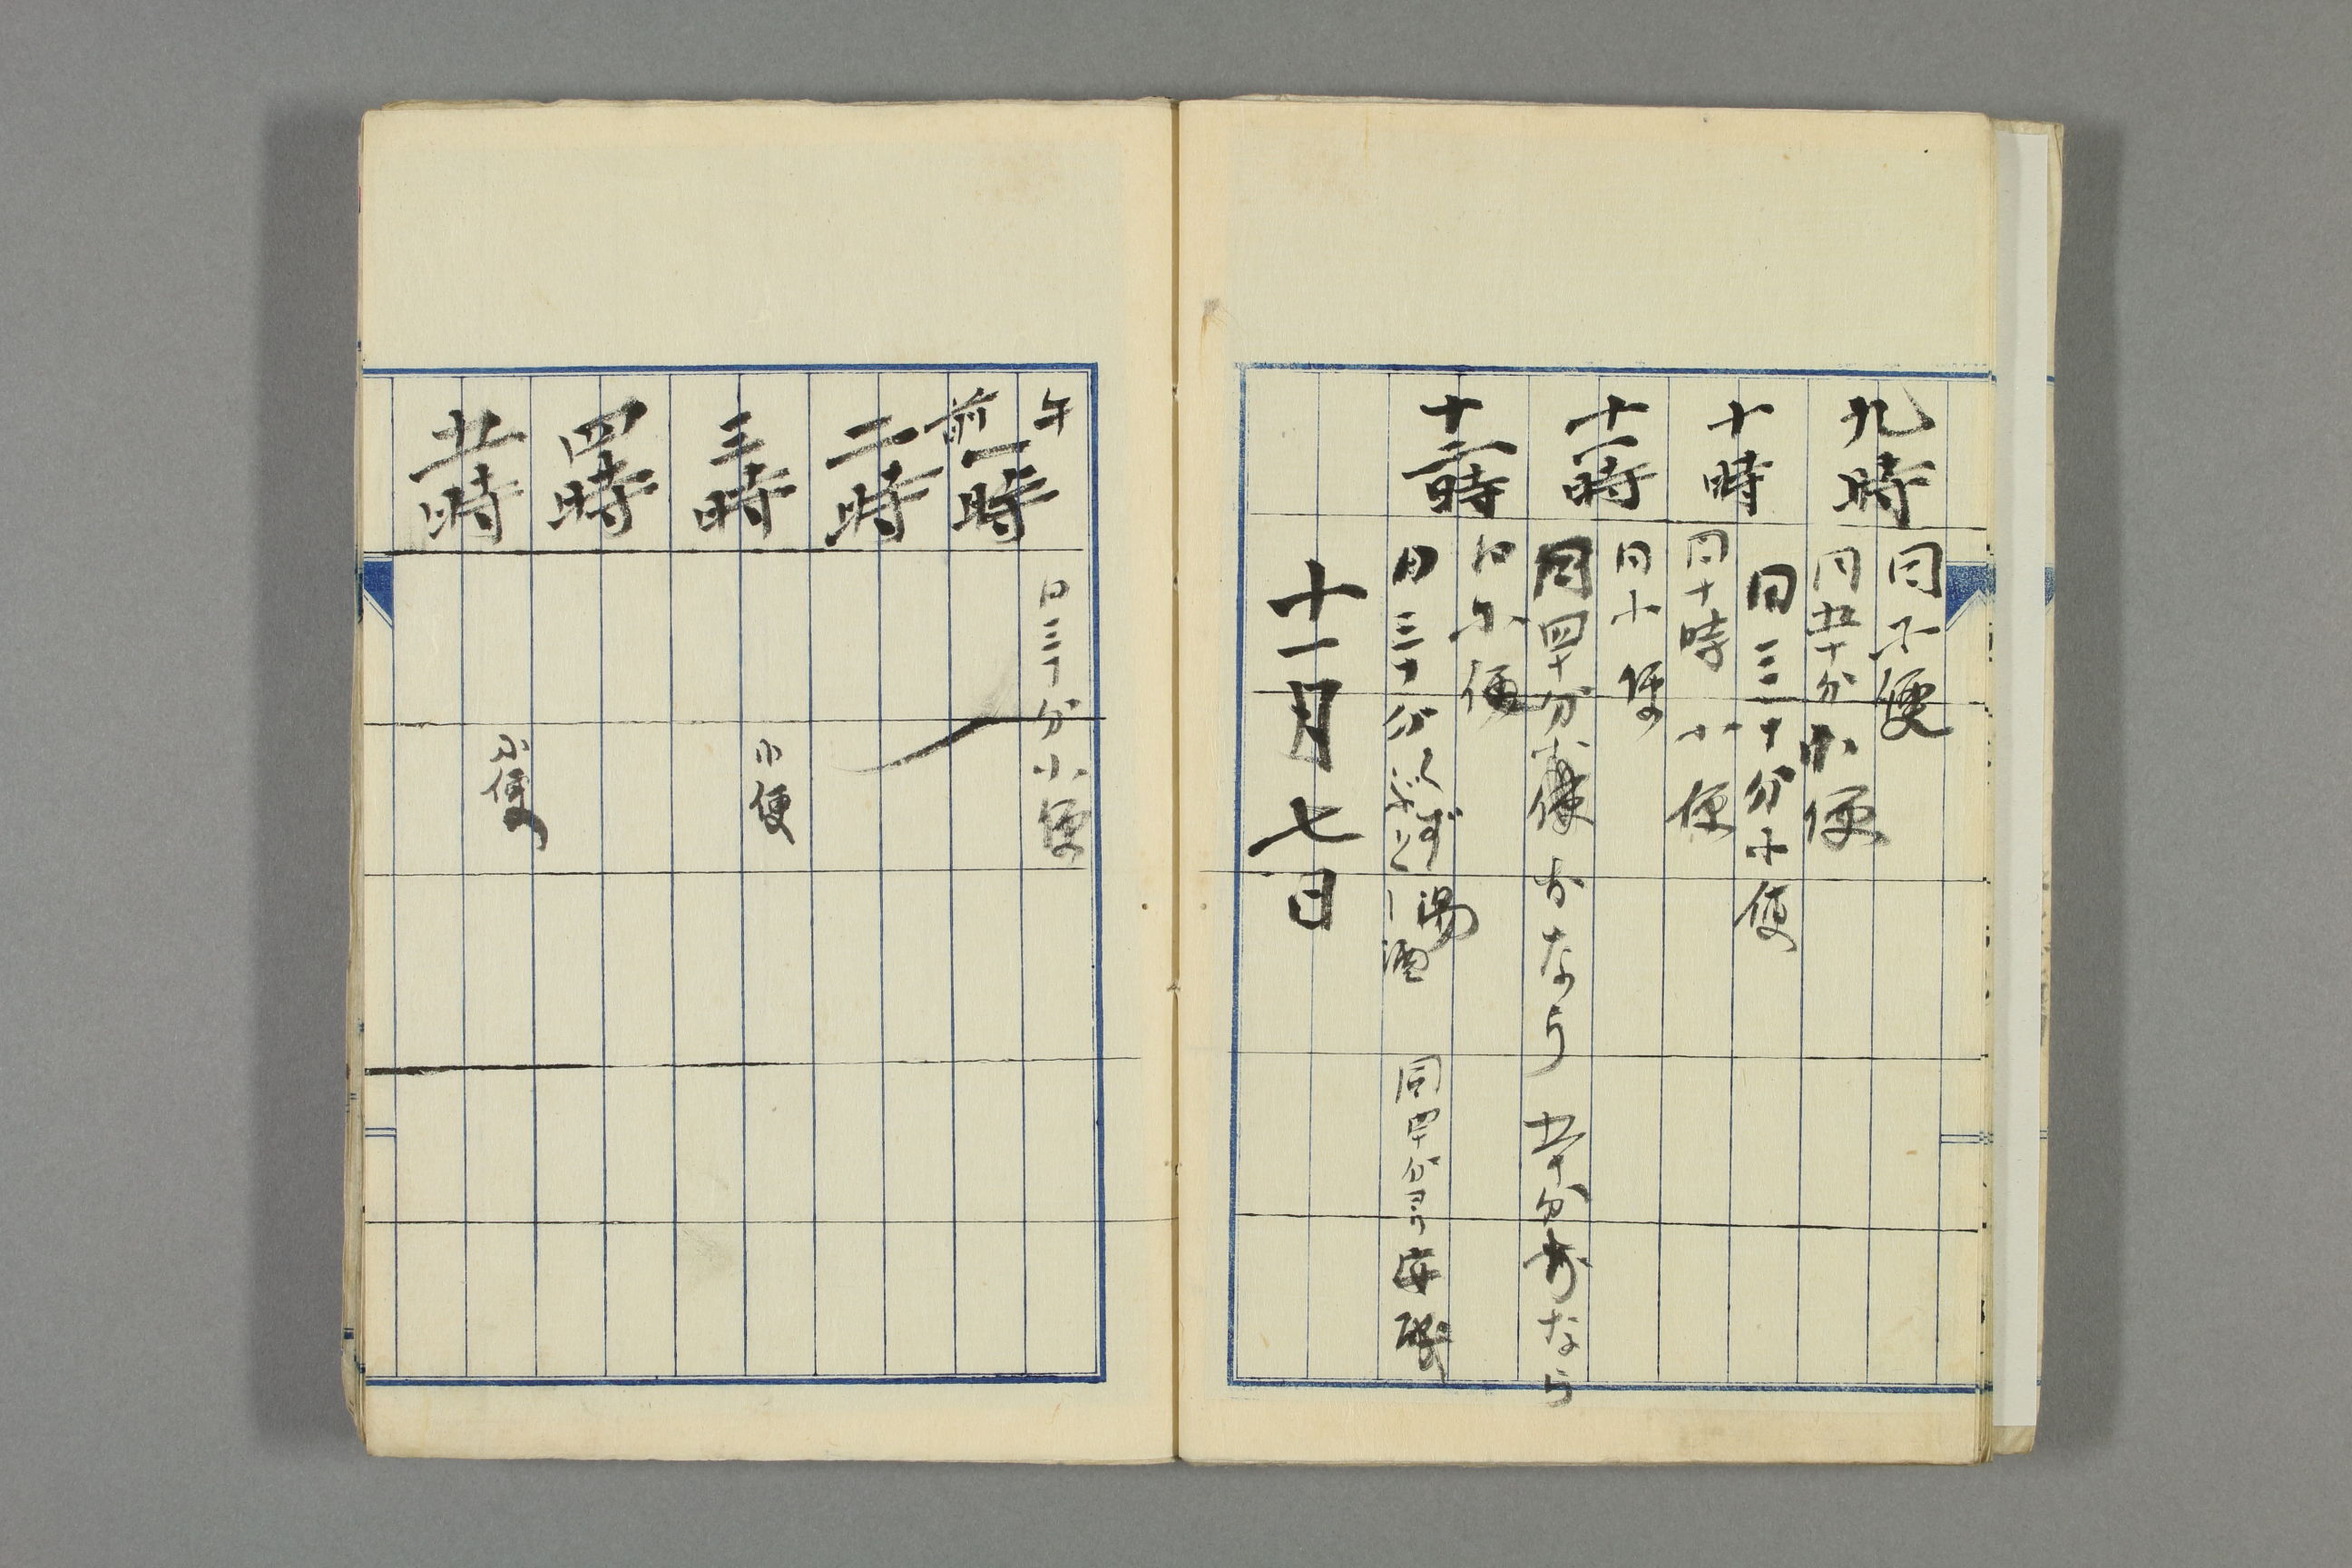 九時
同小便
同五十分小便
十時
同三十分小便
同十時小便
十一時
同小便
同四十分小便 おなら 五十分おなら
十二時
同小便
同三十分くず湯
ぶどー酒 同四十分ヨリ安眠
十一月七日
午前一時
同三十分小便
二時
三時
小便
四時
五時
小便